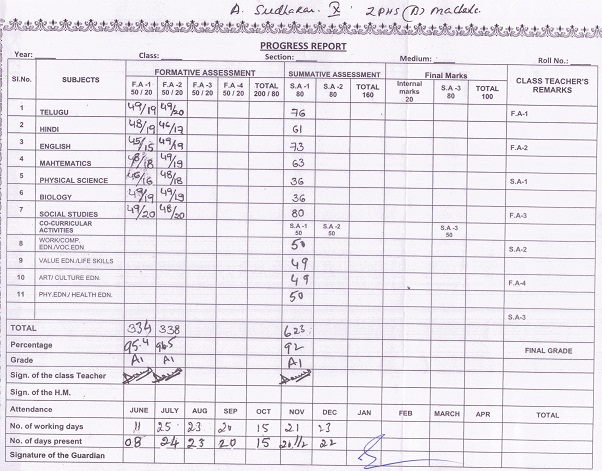 A. Sudhakar. X ZPHS (B) Mallade.
PROGRESS REPORT
Year: Class: Section: Medium: Roll No.:
Sl.No. SUBJECTS FORMATIVE ASSESSMENT SUMMATIVE ASSESSMENT Final Marks CLASS TEACHER'S REMARKS
F.A -1 50 / 20 F.A -2 50 / 20 F.A -3 50 / 20 F.A -4 50 / 20 TOTAL 200 / 80 S.A -1 80 S.A -2 80 TOTAL 160 Internal marks 20 S.A -3 80 TOTAL 100
1 TELUGU 49/19 49/20 76 F.A-1
2 HINDI 48/19 46/17 61
3 ENGLISH 45/15 49/19 73 F.A-2
4 MAHTEMATICS 48/18 49/19 63
5 PHYSICAL SCIENCE 46/16 48/18 36 S.A-1
6 BIOLOGY 49/19 49/19 36
7 SOCIAL STUDIES 49/20 48/20 80 F.A-3
CO-CURRICULAR ACTIVITIES S.A -1 50 S.A -2 50 S.A -3 50
8 WORK/COMP. EDN./VOC.EDN 50 S.A-2
9 VALUE EDN./LIFE SKILLS 49
10 ART/ CULTURE EDN. 49 F.A-4
11 PHY.EDN./ HEALTH EDN. 50
S.A-3
TOTAL 334 338 623
Percentage 95.4 96.5 92 FINAL GRADE
Grade A1 A1 A1
Sign. of the class Teacher
Sign. of the H.M.
Attendance JUNE JULY AUG SEP OCT NOV DEC JAN FEB MARCH APR TOTAL
No. of working days 11 25 23 20 15 21 23
No. of days present 08 24 23 20 15 20 1/2 22
Signature of the Guardian